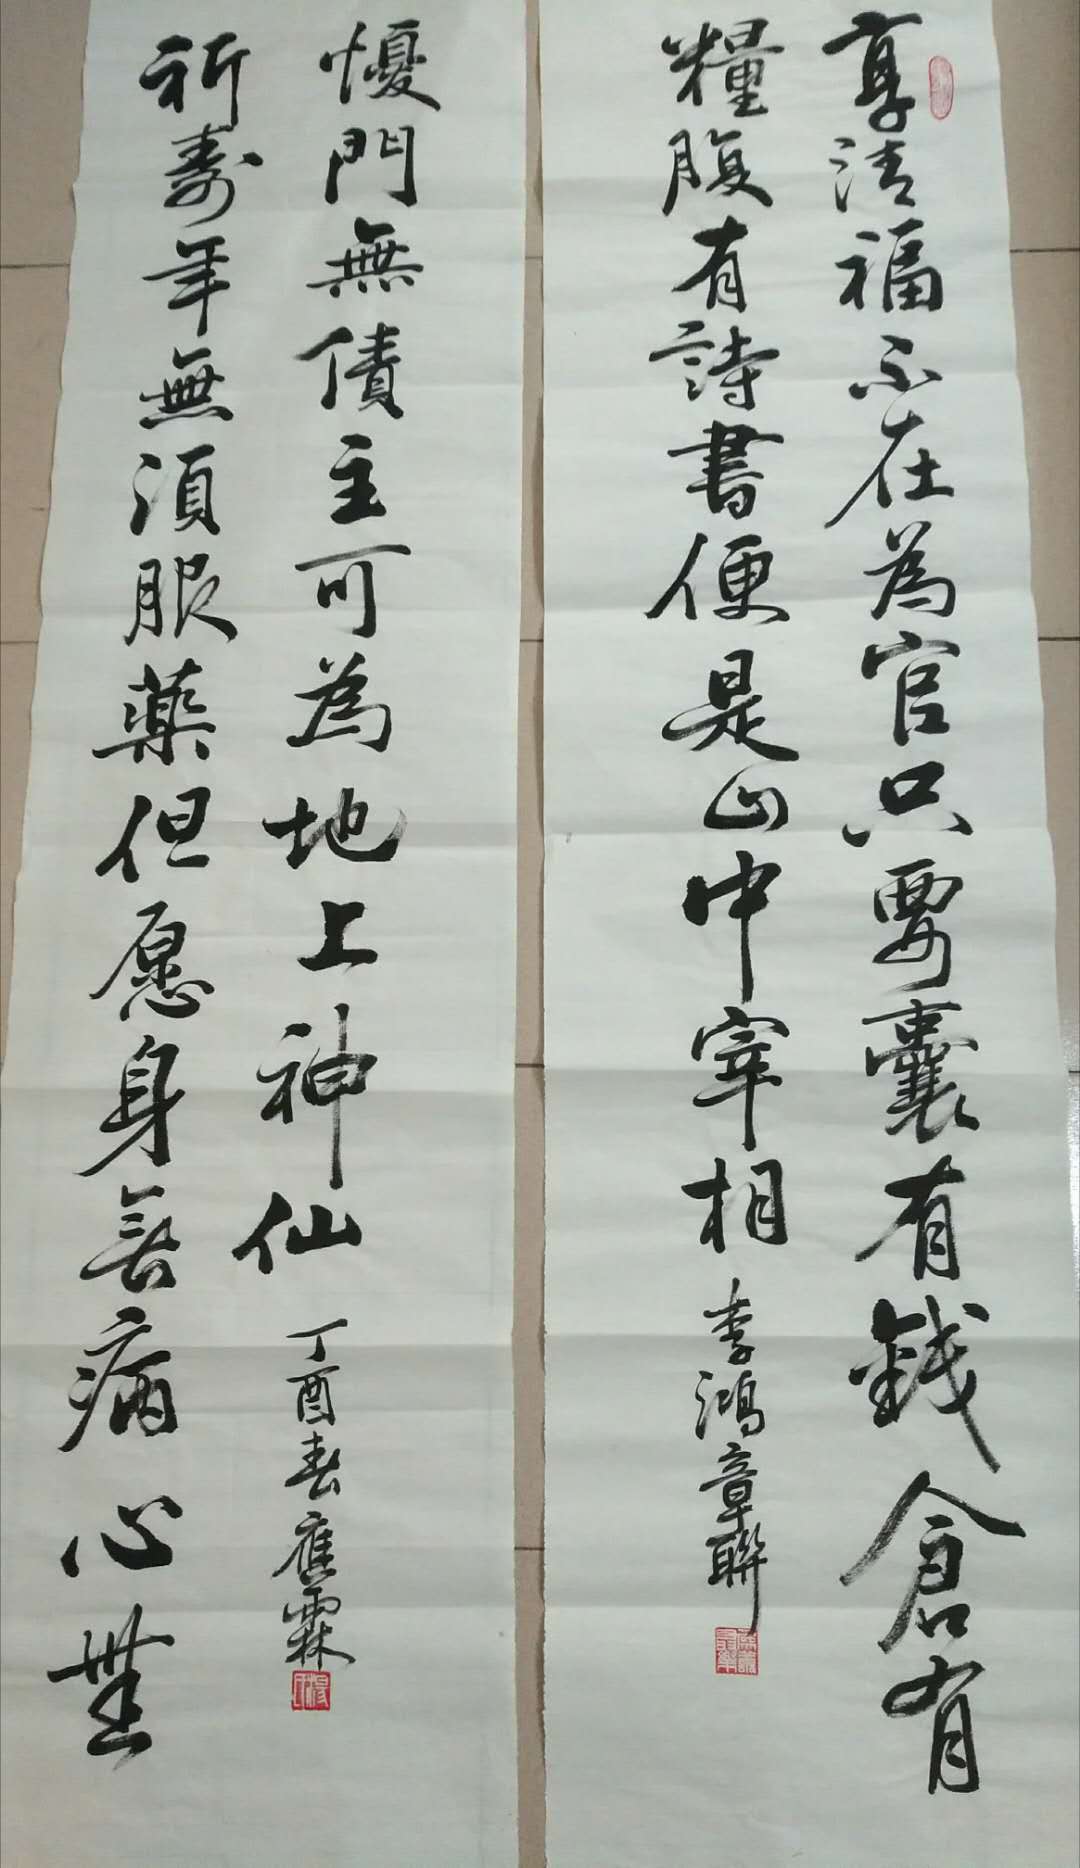 享清福不在為官只要囊有錢倉有
糧腹有詩書便是山中宰相
李鴻章聯
祈壽年無須服藥但愿身無病心無
懮門無債主可為地上神仙
丁酉春應霖